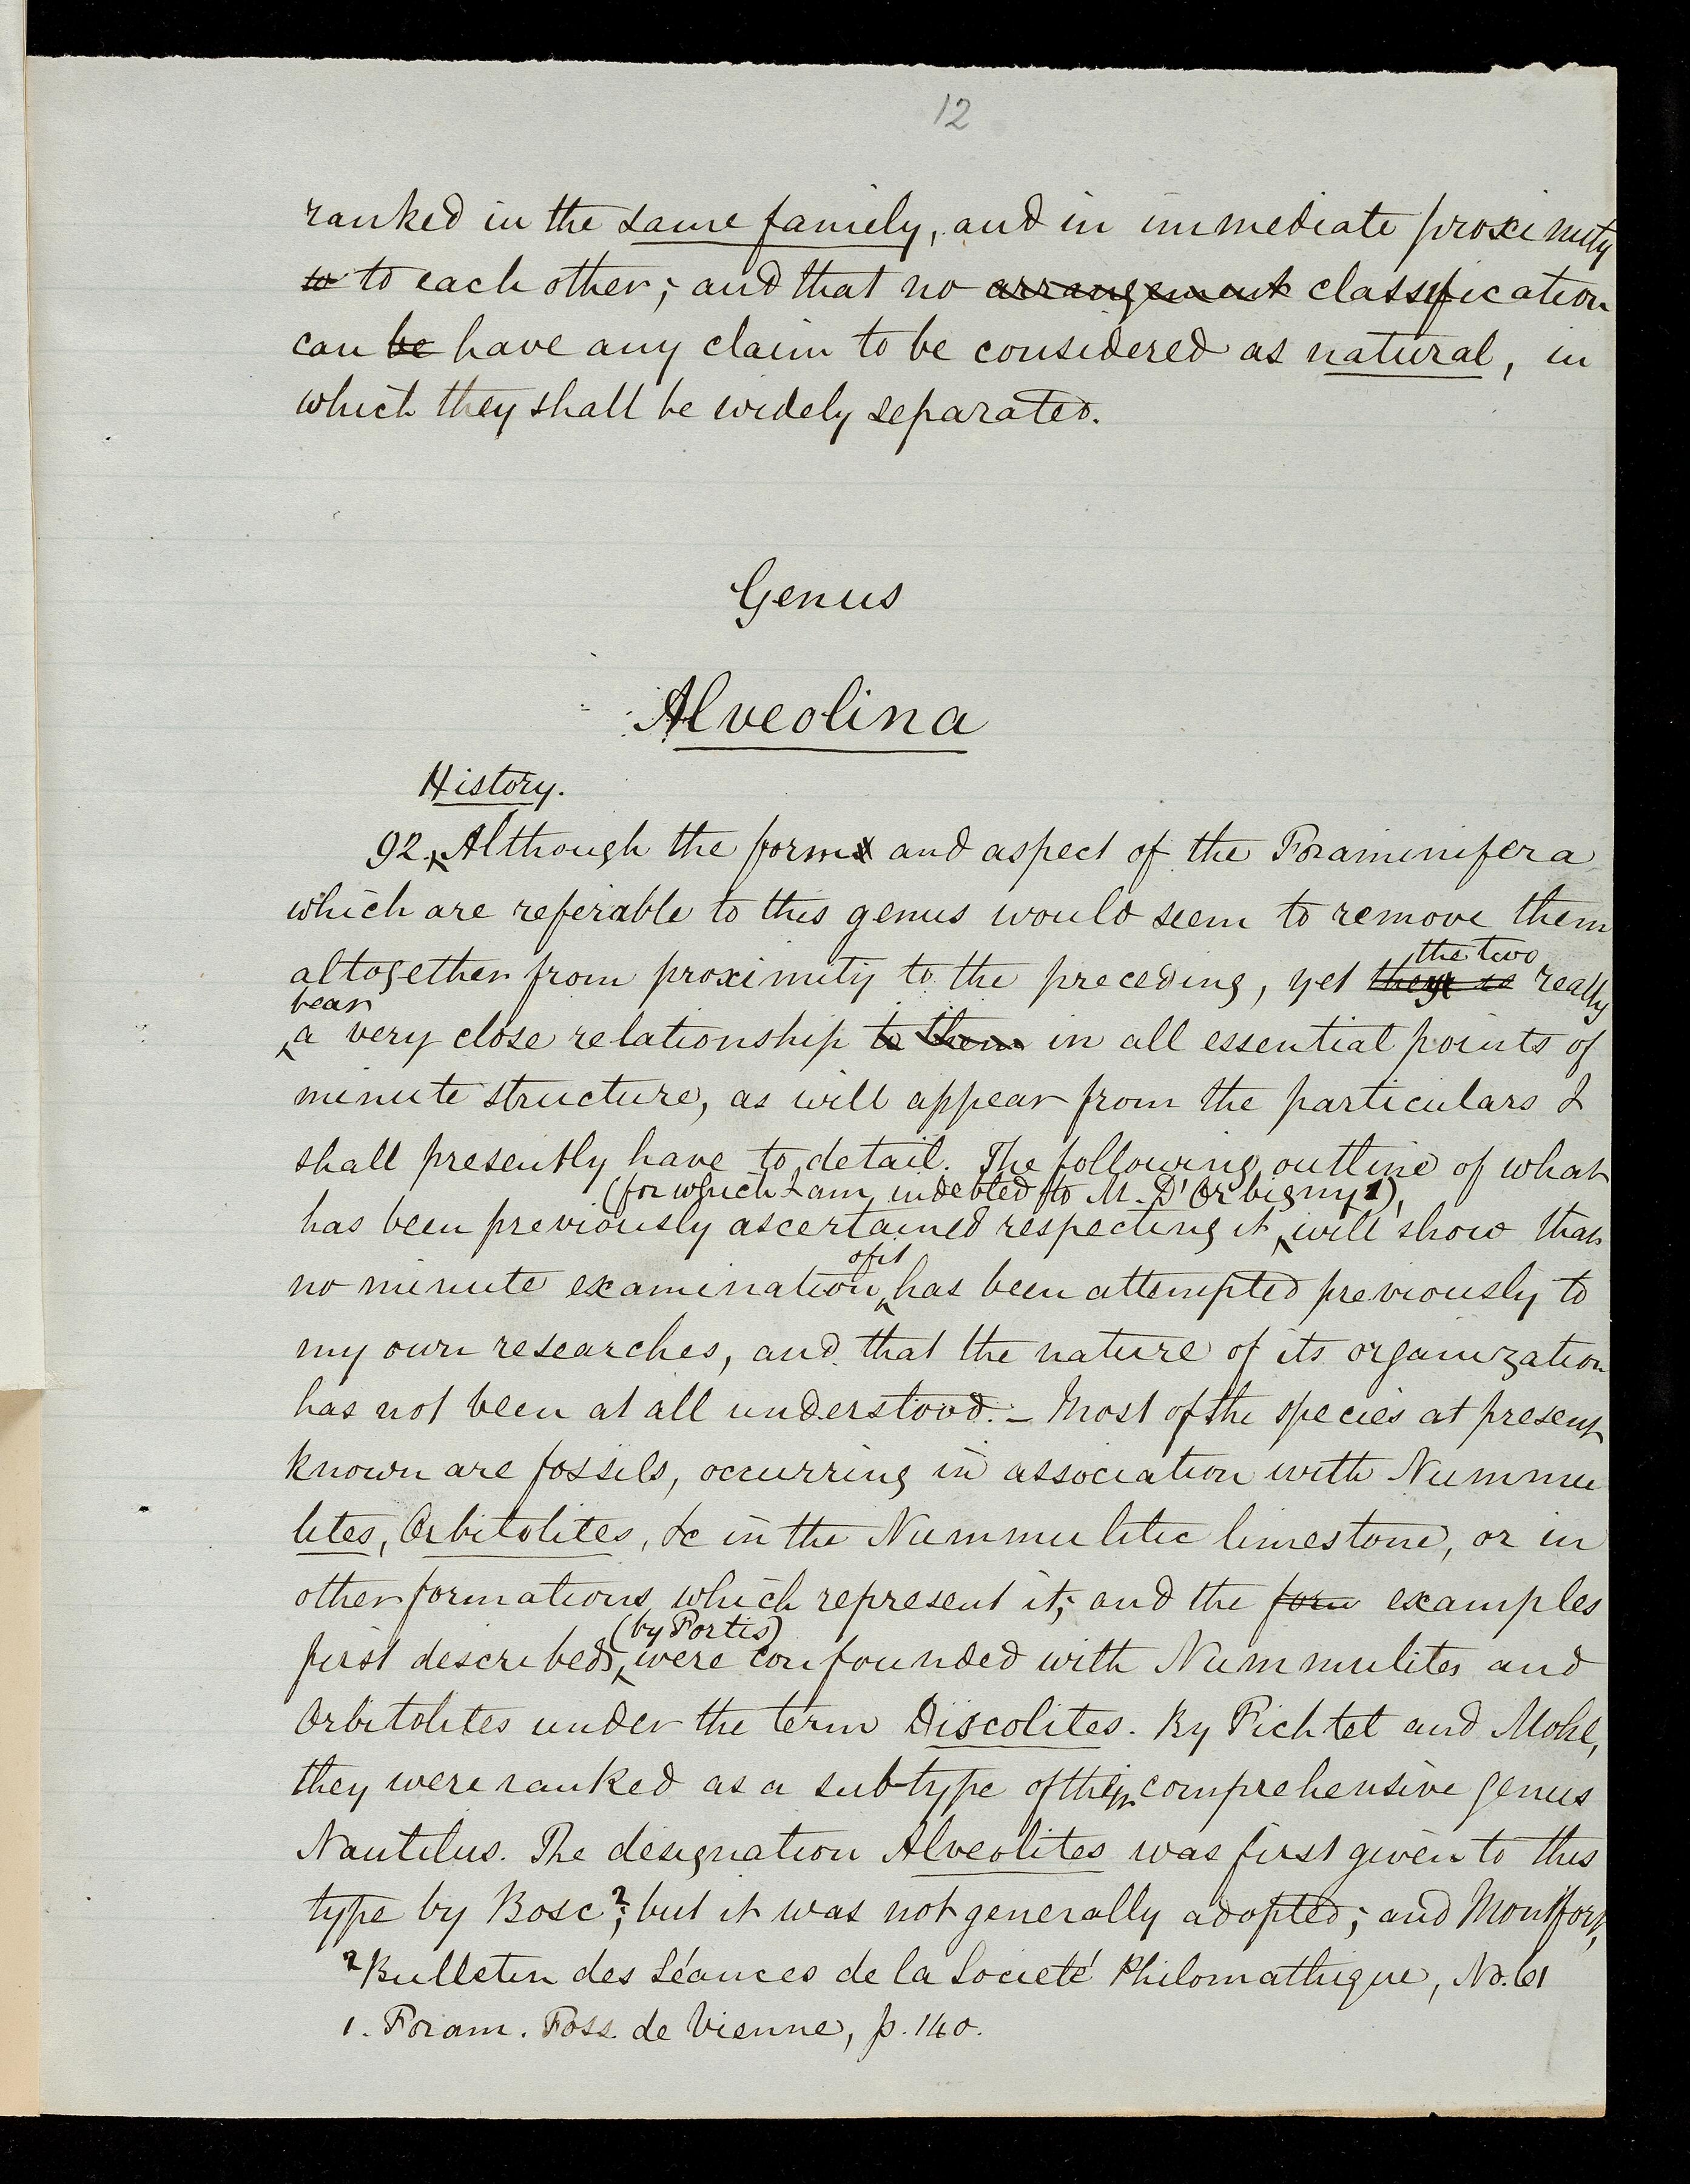 12
ranked in the same family, and in immediate proximity
to to each other; and that no arrangement classification
can be have any claim to be considered as natural, in
which they shall be widely separated.
Genus
Alveolina
History.
92. Although the forms and aspect of the Foraminifera
which are referable to this genus would seem to remove them
the two
altogether from proximity to the preceding, yet really
bear
a very close relationship to them in all essential points of
minute structure, as will appear from the particulars I
shall presently have to detail. The following outline of what
(for which I am indebted to M. D'Orbigny 1),
has been previously ascertained respecting it will show that
of it
no minute examination has been attempted previously to
my own researches, and that the nature of its organization
has not been at all understood. – Most of the species at present
known are fossils, occurring in association with Nummu
lites, Orbitolites, &c in the Nummulitic limestone, or in
other formations which represent it; and the form examples
(by Fortis)
first described, were confounded with Nummulites and
Orbitolites under the term Discolites. By Fichtel and Mohl,
they were ranked as a sub-type of their comprehensive genus
Nautilus. The designation Alveolites was first given to this
type by Bosc 2; but it was not generally adopted; and Montfort,
2 Bulletin des Séances de la Societé Philomathique, No. 61
1. Foram. Foss. de Vienne, p. 140.